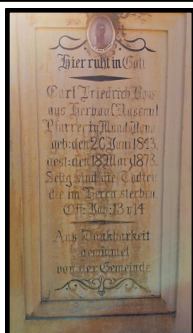 Hier ruht in Gott
Carl Friedrich
aus
Pfarrer in
geb: den 20 Juni 1843.
gest: den 18 März 1873.
Selig sind die Todten
die im Herrn sterben
Off: Joh: 13 v 14
Aus Dankbarkeit
gewidmet
von der Gemeinde